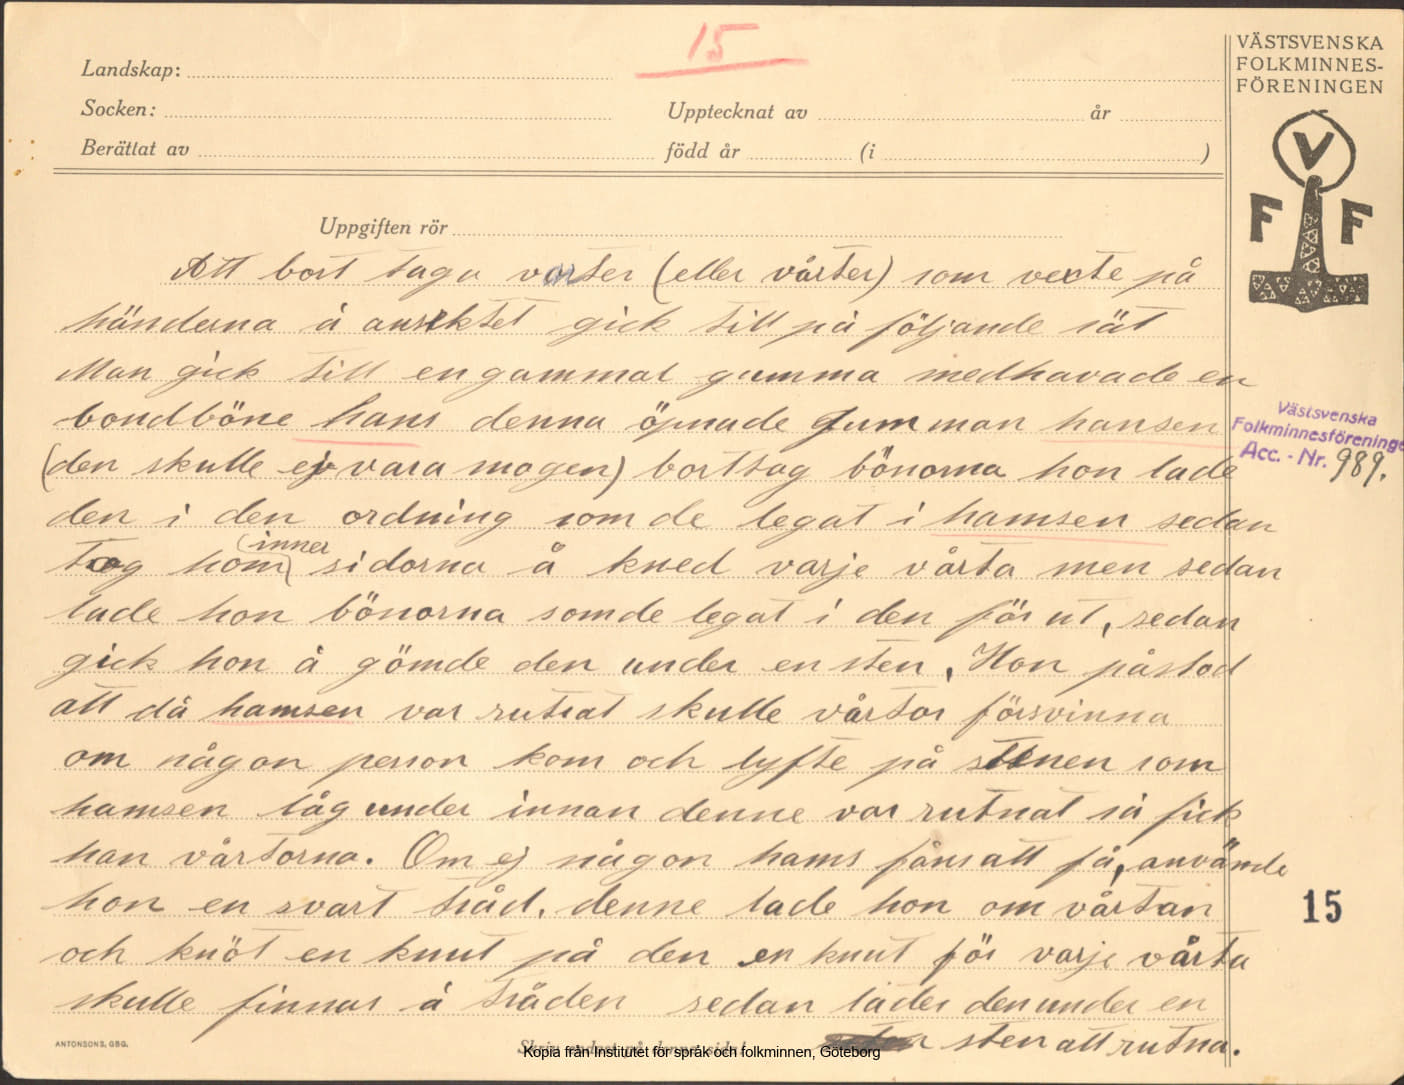 15
VÄSTSVENSKA
FOLKMINNES-
FÖRENINGEN
Landskap:
Socken:
Upptecknat av
år
Berättat av
född år
(i
)
V
F F
Uppgiften rör
Att bort taga vorter (eller vårter) som vexte på
händerna å ansiktet gick till på följande sät
Man gick till en gammal gumma medhavade en
bondböne hans denna öpnade gumman hansen
(den skulle ej vara mogen) borttag bönorna hon lade
den i den ordning som de legat i hamsen sedan
tog hon inner sidorna å kned varje vårta men sedan
lade hon bönorna somde legat i den för ut, sedan
gick hon å gömde den under en sten, Hon påstod
att då hamsen var rutnat skulle vårtor försvinna
om någon person kom och lyfte på stenen som
hamsen låg under innan denne var rutnat så fick
han vårtorna. Om ej någon hams fans att få, använde
hon en svart tråd, denne lade hon om vårtan
och knöt en knut på den en knut för varje vårta
skulle finnas å tråden sedan lades den under en
sten att rutna.
Västsvenska
Folkminnesföreninge
Acc. - Nr. 989.
15
ANTONSONS, GBG.
Skriv endast på denna sida!
Kopia från Institutet för språk och folkminnen, Göteborg